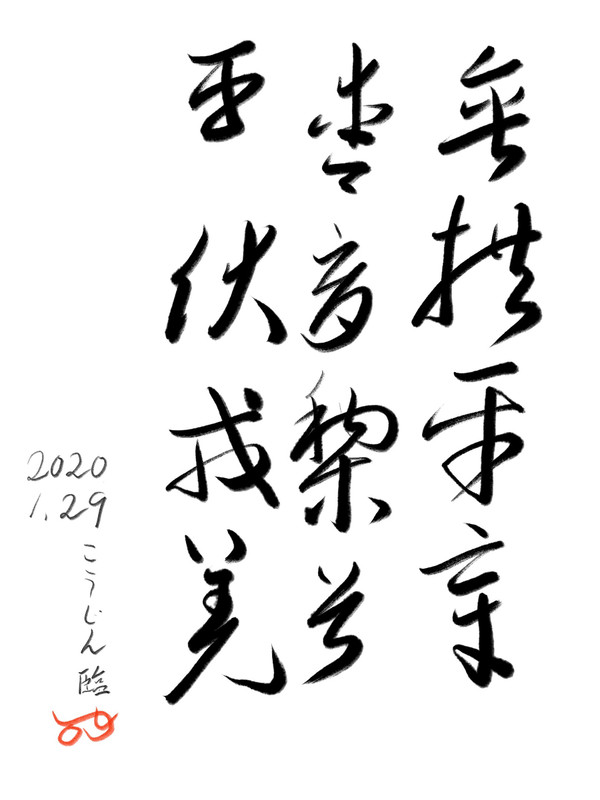 垂拱平章
愛育黎首
臣伏戎羌
2020
1.29
こうじん臨